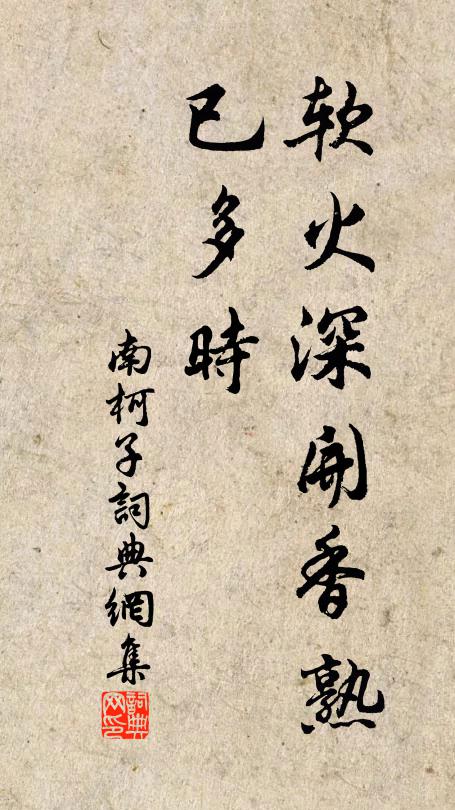 軟火深開香熟
已多時
南柯子詞典網集
詞典
网印